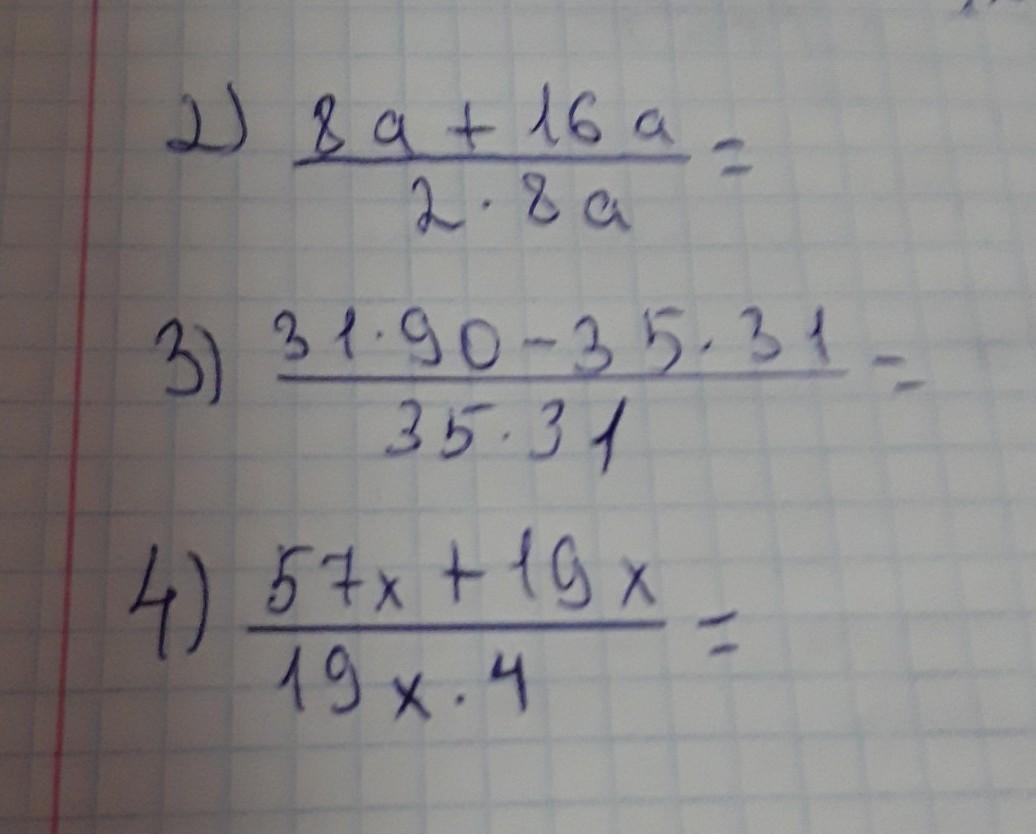 2) 8a + 16a =
2 · 8a
3) 31·90 - 35·31 =
35·31
4) 57x + 19x =
19x · 4